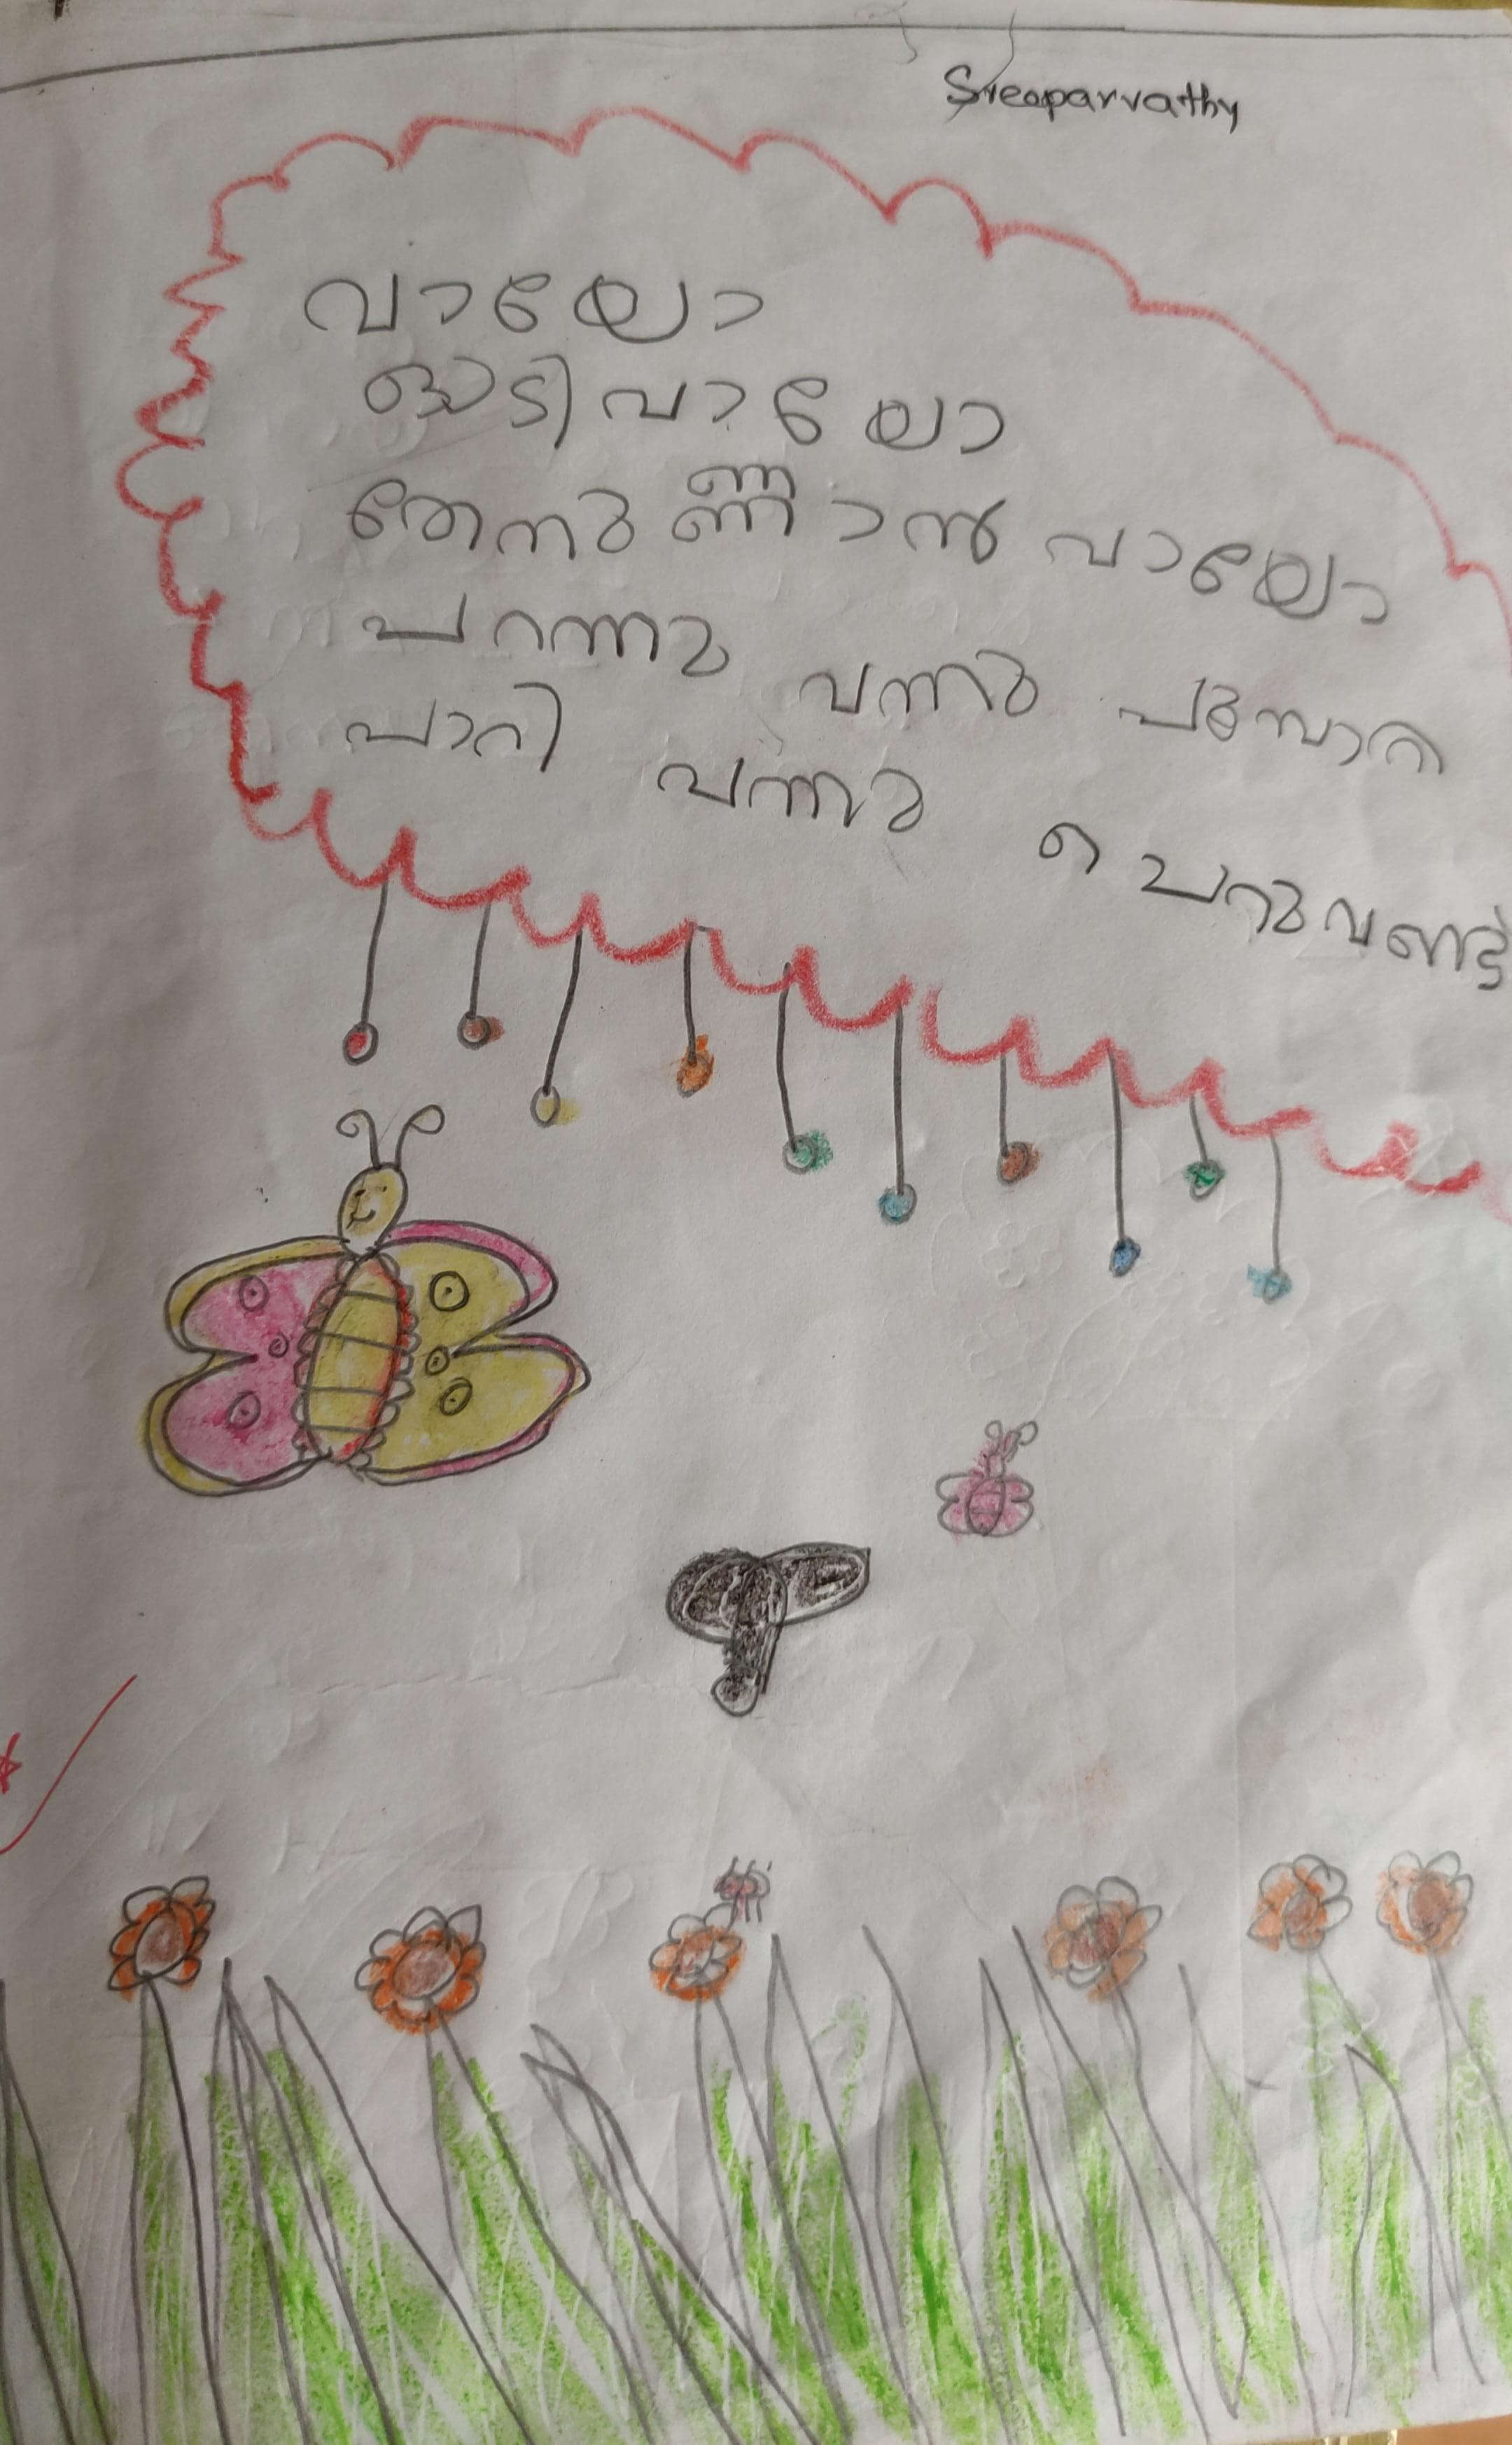 Sreeparvathy
വായോ
ഓടി വായോ
തേനുണ്ണാൻ വായോ
പറന്നു വന്നു പൂമ്പാറ്റ
പാറി വന്നു ചെറുവണ്ട്